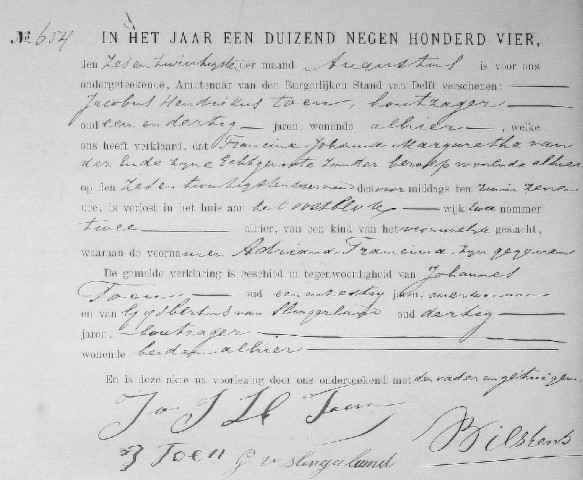 No. 654 IN HET JAAR EEN DUIZEND NEGEN HONDERD VIER,
den Zes en twintigsten der maand Augustus is voor ons
ondergeteekende, Ambtenaar van den Burgerlijken Stand van Delft verschenen:
Jacobus Hendrikus Toen, houtzager
oud een en dertig jaren, wonende alhier, welke
ons heeft verklaard, dat Francina Johanna Margaretha van
der Ende zijne Echtgenoote zonder beroep wonende alhier
op den Zes en twintigsten dezer des voor middags ten zeven
ure, is verlost in het huis aan het wijk twee nommer
twee alhier, van een kind van het vrouwelijke geslacht,
waaraan de voornamen Adriana Francina zijn gegeven
De gemelde verklaring is geschied in tegenwoordigheid van Johannes
Toen oud een en zestig jaren,
en van Gijsbertus van Slingerland oud dertig
jaren, houtzager
wonende beiden alhier
En is deze akte na voorlezing door ons onderteekend met den vader en getuigen
J H Toen
J Toen G v Slingerland